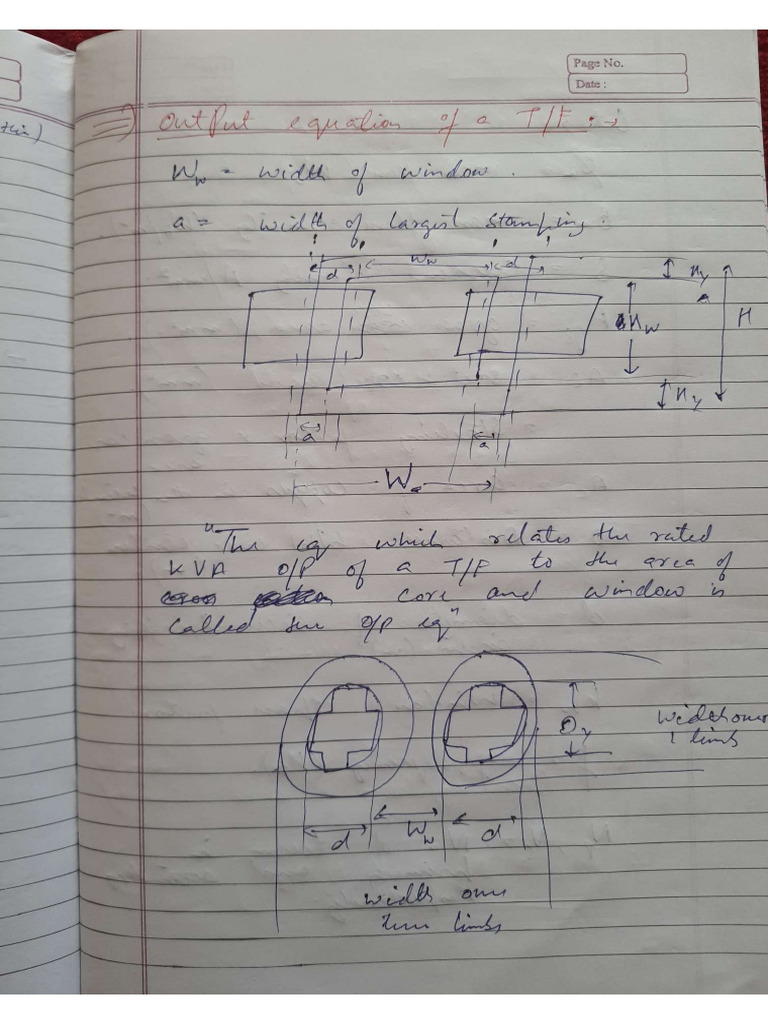 Page No.
Date :
tkin)
=> Output equation of a T/F :→
Ww = width of window.
a = width of largest stamping.
d Ww d
Hy
H
Hw
Hy
a a
W
"The eq which relates the rated
KVA O/P of a T/F to the area of
core and window is
called the O/P eq"
Dy
width over
1 limb
d Ww d
width over
two limbs